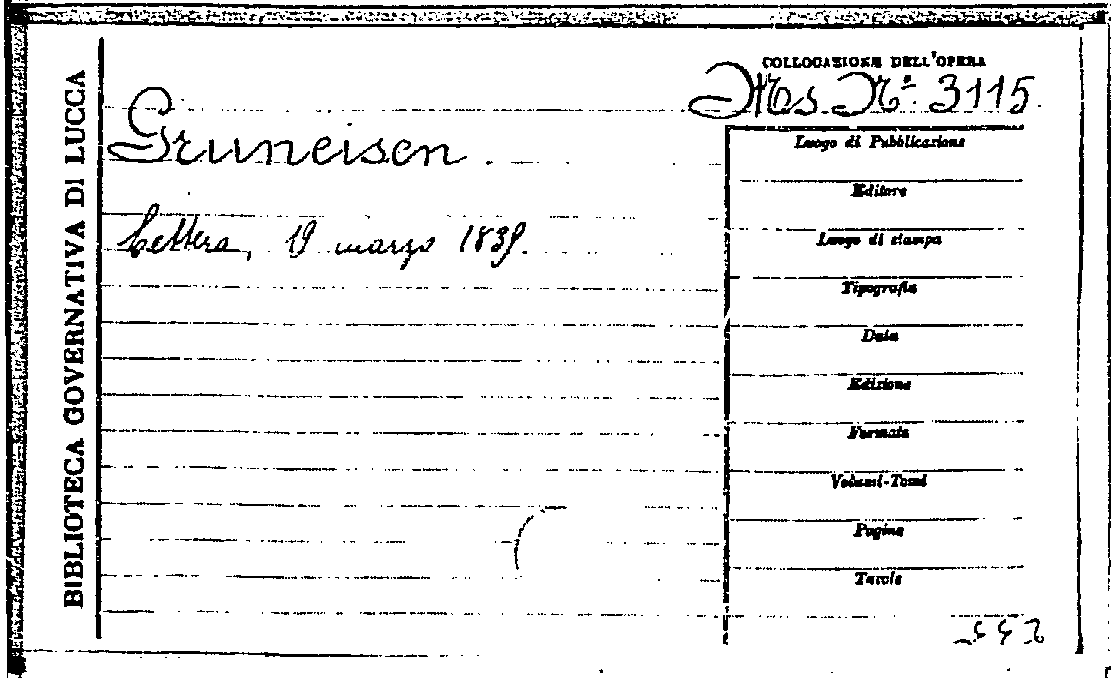 BIBLIOTECA GOVERNATIVA DI LUCCA
COLLOCAZIONE DELL'OPERA
Ms. N.º 3115.
Gruneisen.
Lettera, 19 marzo 1839.
Luogo di Pubblicazione
Editore
Luogo di stampa
Tipografia
Data
Edizione
Formato
Volumi-Tomi
Pagine
Tavole